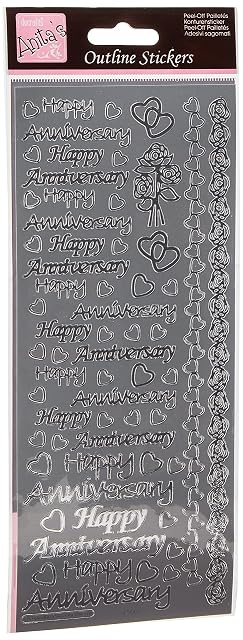 docrafts
Anita's
Outline Stickers
Peel-Off Pailletés
Konturensticker
Peel-Off Pailletés
Adesivi sagomati
Happy
Anniversary
Happy
Anniversary
Happy
Anniversary
Happy
Anniversary
Happy
Anniversary
Happy
Anniversary
Happy
Anniversary
Happy
Anniversary
Happy
Anniversary
Happy
Anniversary